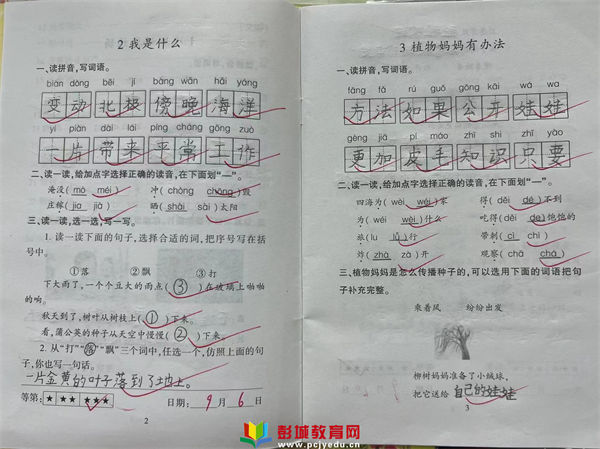 2 我是什么
一、读拼音,写词语。
biàn dòng běi jí bàng wǎn hǎi yáng
变动 北极 傍晚 海洋
yí piàn dài lái píng cháng gōng zuò
一片 带来 平常 工作
二、读一读,给加点字选择正确的读音,在下面划“—”。
淹没(mò méi) 冲(chōng chòng)毁
庄稼(jia jià) 晒(shài sài)太阳
三、读一读,选一选,写一写。
1. 读一读下面的句子,选择合适的词,把序号写在括
号中。
①落 ②飘 ③打
下大雨了,一个个豆大的雨点(③)在玻璃上啪啪
的响。
秋天到了,树叶从树枝上(①)下来。
看,蒲公英的种子从天空中慢慢(②)下来。
2. 从“打”“落”“飘”三个词中,任选一个,仿照上面的句
子,你也写一句话。
一片金黄的叶子落到了地上。
等第: ★★★★★★ 日期: 9 月 6 日
2
3 植物妈妈有办法
一、读拼音,写词语。
fāng fǎ rú guǒ gōng kāi wá wa
方法 如果 公开 娃娃
gèng jiā pí máo zhī shi zhǐ yào
更加 皮毛 知识 只要
二、读一读,给加点字选择正确的读音,在下面划“—”。
四海为(wéi wèi)家 得(děi dé)不到
为(wéi wèi)什么 吃得(děi de)饱饱的
旅(lu lǚ)行 带刺(cì chì)
炸(zhà zà)开 观察(chá cá)
三、植物妈妈是怎么传播种子的,可以选用下面的词语把句
子补充完整。
乘着风 纷纷出发
柳树妈妈准备了小绒球,
把它送给自己的娃娃
3
彭城教育网
www.pcjyedu.com